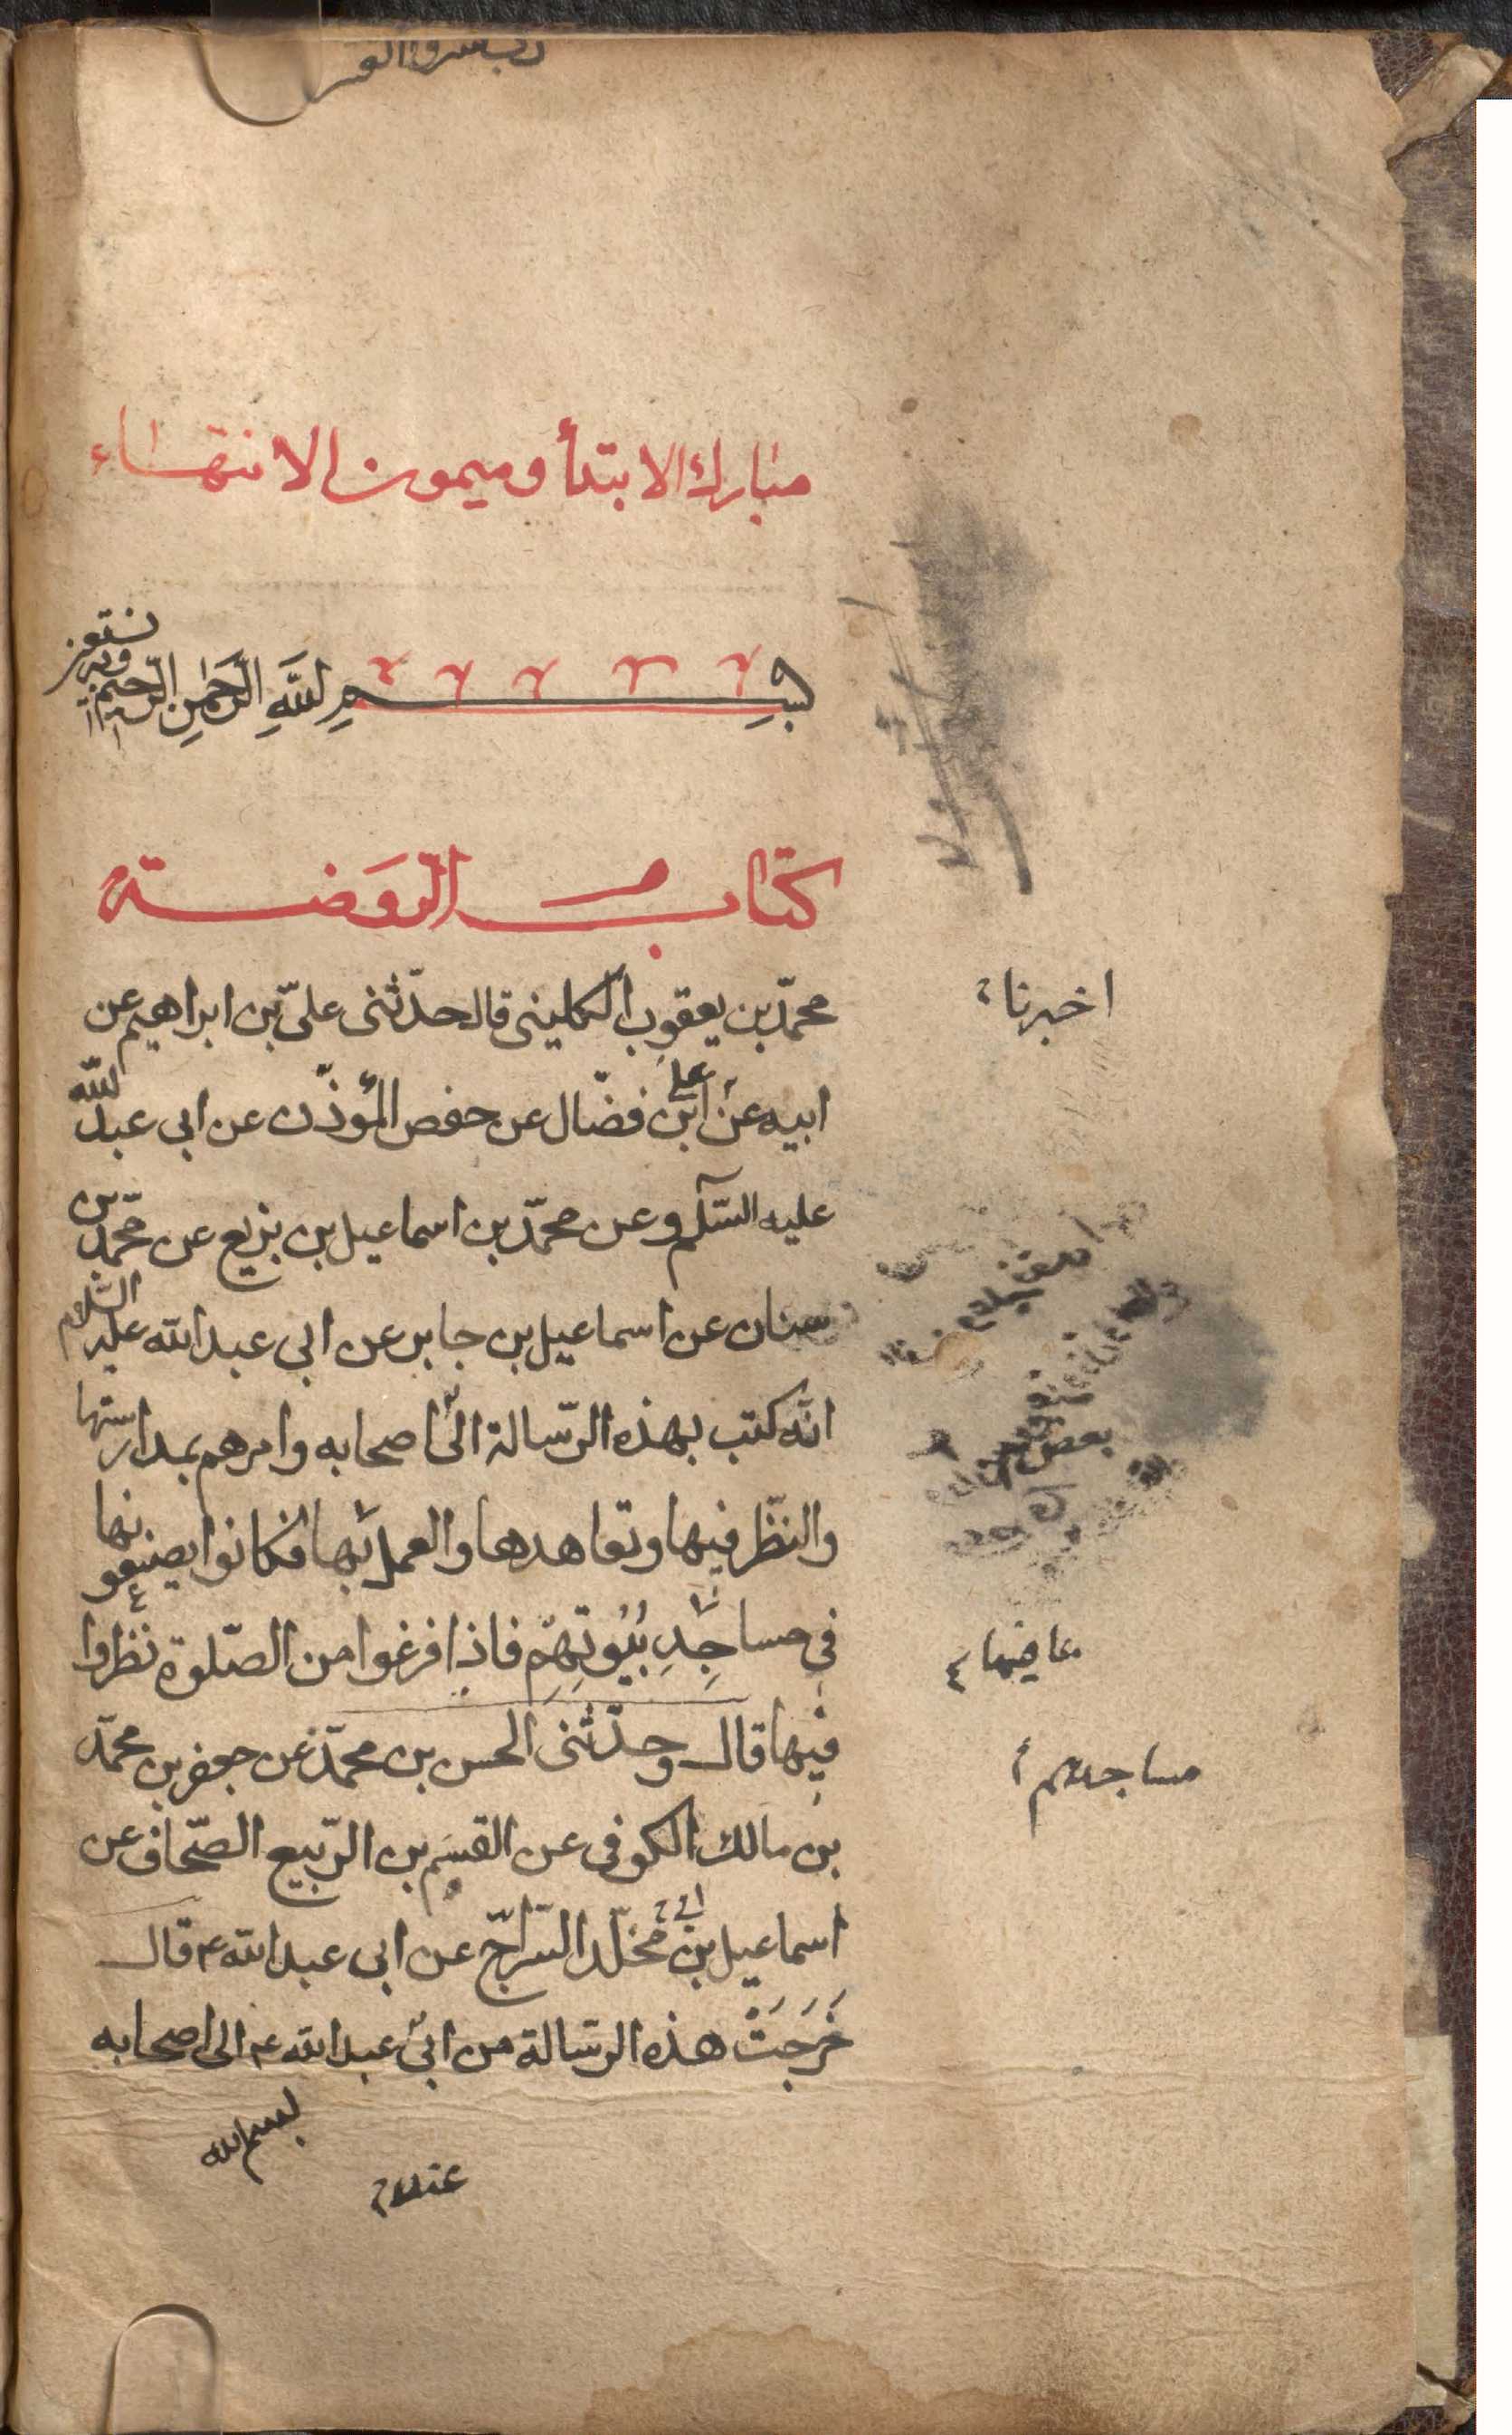 مبارك الابتدأ وميمون الانتهاء
بِسْمِ اللَّهِ الرَّحْمٰنِ الرَّحِيمِ وبه نستعين
كتاب الرَوضة
محمّد بن يعقوب الكلينى قال حدّثنى علىّ بن ابراهيم عن
ابيه عن ابن فضّال عن حفص المؤذّن عن ابى عبد اللّه
عليه السّلم وعن محمّد بن اسماعيل بن بزيع عن محمّد بن
سنان عن اسماعيل بن جابر عن ابى عبد الله عليه السّلام
انّه كتب بهذه الرّسالة الى اصحابه وامرهم بمدارستها
والنّظر فيها وتعاهدها والعمل بها فكانوا يضعونها
فى مساجِدِ بُيُوتِهِم فاذا فرغوا من الصّلوة نظروا
فيها قال وحدّثنى الحسن بن محمّد عن جعفر بن محمّد
بن مالك الكوفى عن القسم بن الرّبيع الصّحاف عن
اسماعيل بن مخلّد السّراج عن ابى عبد الله ع قال
خَرَجَتْ هذه الرسالة من ابى عبد الله ع الى اصحابه
بسم الله
اخبرنا
بعض
مما فيها
مساجدهم